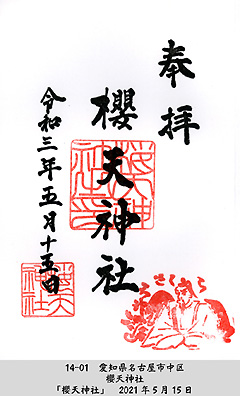 奉拝
櫻天神社
令和三年五月十五日
さくら
14-01 愛知県名古屋市中区
櫻天神社
「櫻天神社」 2021年5月15日